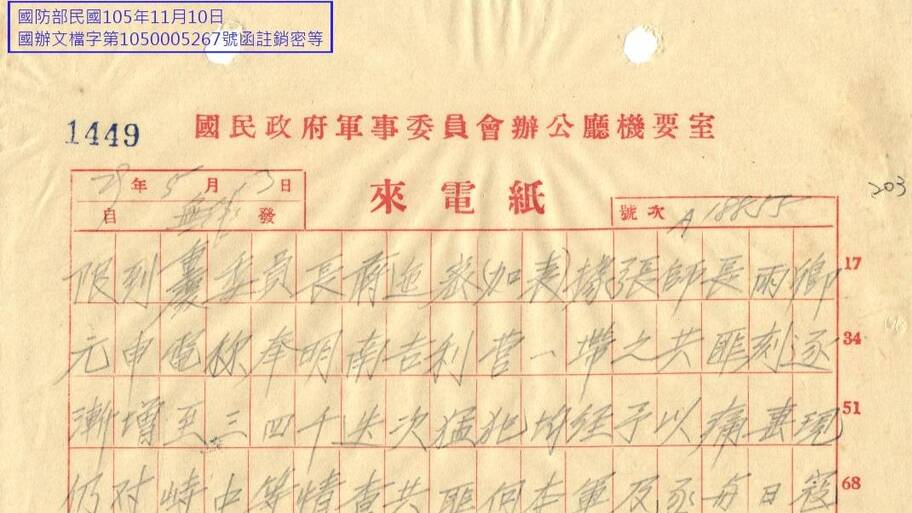 國防部民國105年11月10日
國辦文檔字第1050005267號函註銷密等
1449
國民政府軍事委員會辦公廳機要室
29年5月3日
來電紙
203
自 發
號次 A18855
限到 委員長蔣 密(加表)據張師長雨卿
17
元申電称奉明南吉利营一帶之共匪刻逐
34
漸增至三四千迭次猛犯均经予以痛 現
51
仍对峙中等情查共匪向本軍 每日
68